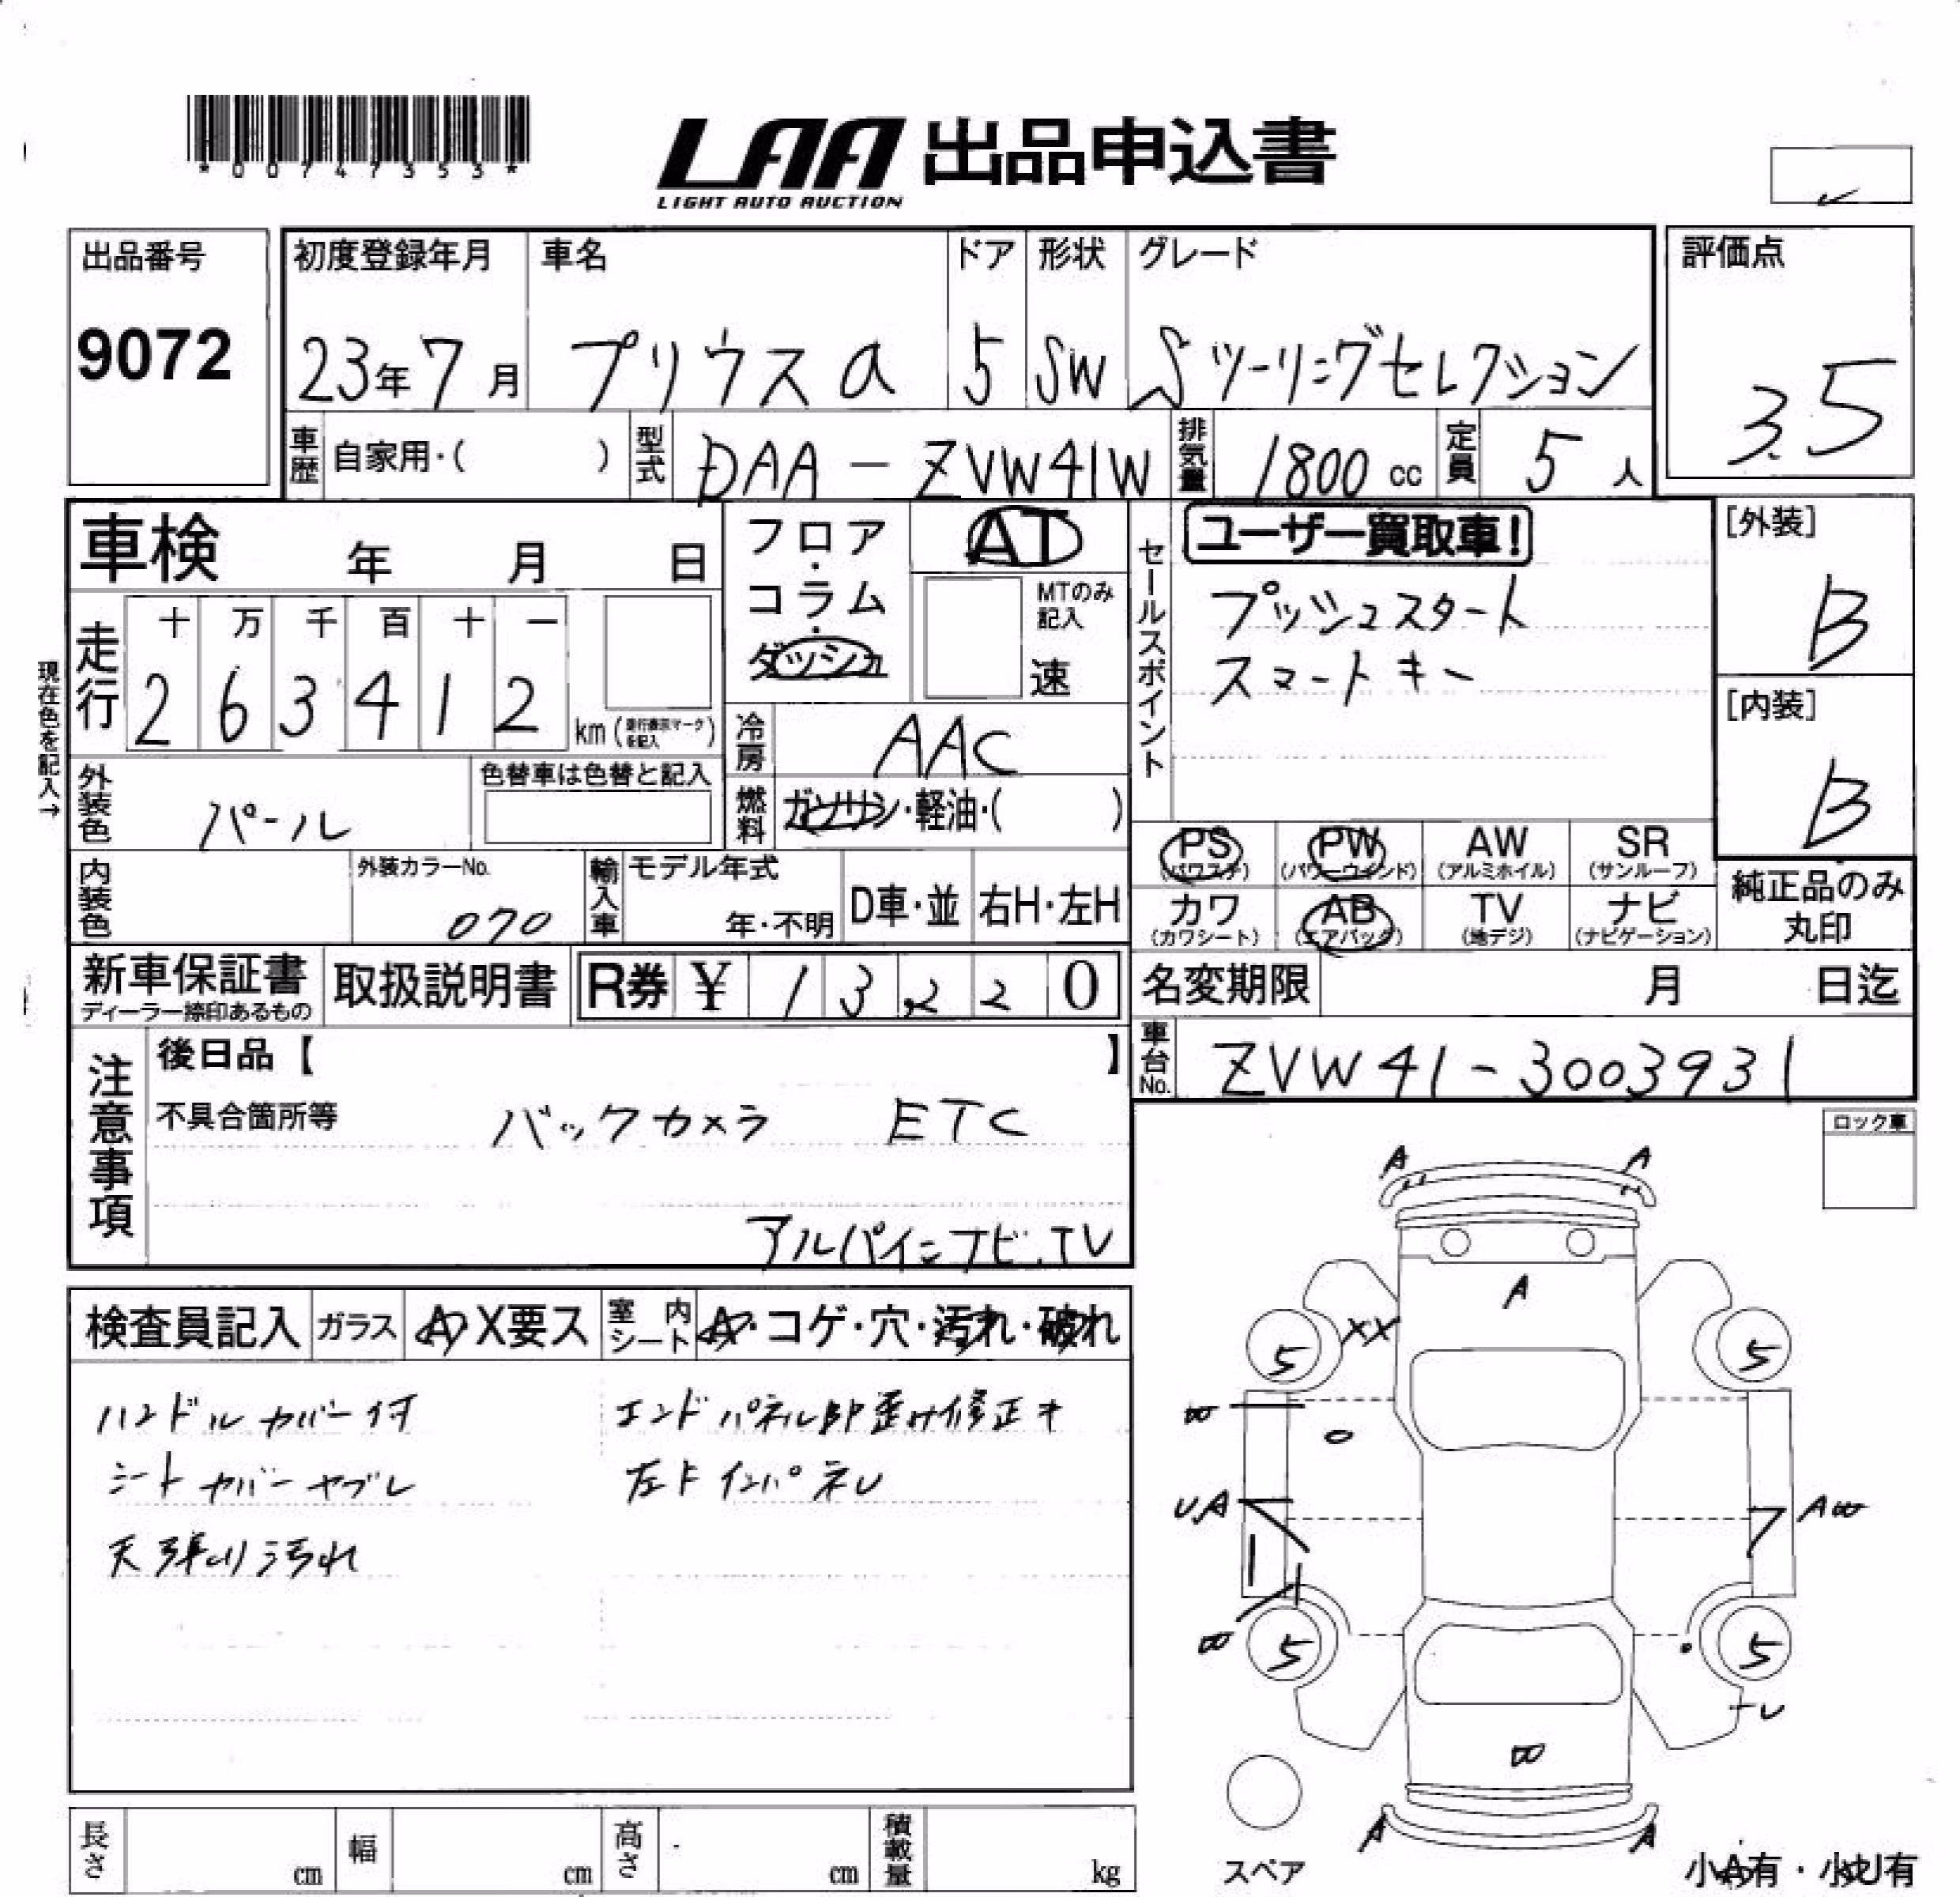 *00747353*
LAA 出品申込書
LIGHT AUTO AUCTION
出品番号
9072
初度登録年月 車名 ドア 形状 グレード
23年7月 プリウスα 5 SW Sツーリングセレクション
評価点
3.5
車歴 自家用・( ) 型式 DAA-ZVW41W 排気量 1800cc 定員 5人
車検 年 月 日
フロア・コラム・ダッシュ
AT
MTのみ記入
速
セールスポイント
ユーザー買取車!
プッシュスタート
スマートキー
[外装]
B
[内装]
B
現在色を記入→
走行
十 万 千 百 十 一
2 6 3 4 1 2 km (走行表示マークを記入)
冷房 AAC
外装色 パール
色替車は色替と記入
燃料 ガソリン・軽油・( )
PS (パワステ) PW (パワーウインド) AW (アルミホイル) SR (サンルーフ)
カワ (カワシート) AB (エアバッグ) TV (地デジ) ナビ (ナビゲーション)
純正品のみ丸印
内装色
外装カラーNo. 070
輸入車 モデル年式 年・不明 D車・並 右H・左H
新車保証書
ディーラー捺印あるもの
取扱説明書
R券 ¥ 13,220
名変期限 月 日迄
車台No. ZVW41-3003931
注意事項
後日品【 】
不具合箇所等
バックカメラ ETC
アルパインナビ.TV
ロック車
検査員記入 ガラス A X要ス 室内シート A・コゲ・穴・汚れ・破れ
ハンドルカバー付 エンドパネル部歪み修正キ
シートカバーヤブレ 左Fインパネル
天張り汚れ
A A
A
XX
5 5
UA
5 5
A A
スペア
小A有・小U有
長さ cm 幅 cm 高さ cm 積載量 kg